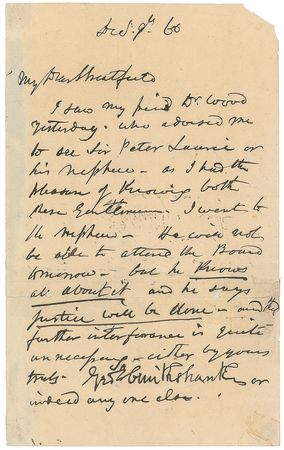 Decr. 9th 60
My Dear Streatfeild
I saw my friend Dr. Wood
yesterday - who advised me
to see Sir Peter Laurie or
his nephew - as I had the
pleasure of knowing both
these Gentlemen - I went to
the nephew - He will not
be able to attend the Board
tomorrow - but he knows
all about it and he says
justice will be done - and that
further interference is quite
unnecessary - either by yours
truly - Geo Cruikshank or
indeed any one else.